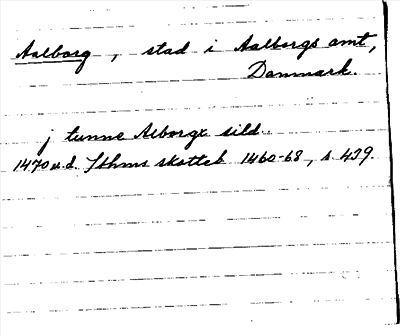 Aalborg, stad i Aalborgs amt,
Danmark.
j tunne Alborgx sild.
1470 u.d. Sthms skatteb 1460-68, s. 439.